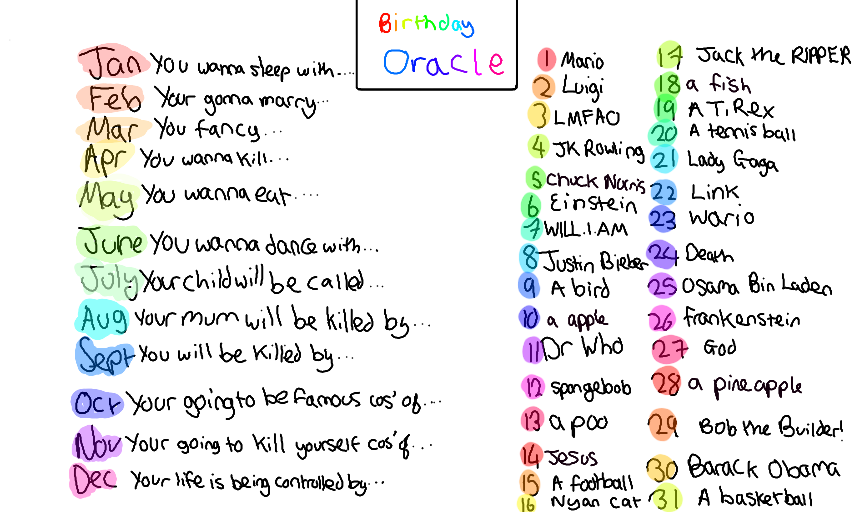 Birthday
Oracle
Jan You wanna sleep with...
Feb Your gonna marry...
Mar You fancy...
Apr You wanna kill...
May You wanna eat....
June You wanna dance with...
July Your child will be called...
Aug Your mum will be killed by...
Sept You will be killed by...
Ocr Your going to be famous cos' of...
Nov Your going to kill yourself cos' of...
Dec Your life is being controlled by...
1 Mario
2 Luigi
3 LMFAO
4 JK Rowling
5 Chuck Norris
6 Einstein
7 WILL.I.AM
8 Justin Bieber
9 A bird
10 a apple
11 Dr Who
12 spongebob
13 a poo
14 Jesus
15 A football
16 Nyan cat
17 Jack the RIPPER
18 a fish
19 A T.Rex
20 A tennis ball
21 Lady Gaga
22 Link
23 Wario
24 Death
25 Osama Bin Laden
26 Frankenstein
27 God
28 a pineapple
29 Bob the Builder!
30 Barack Obama
31 A basketball